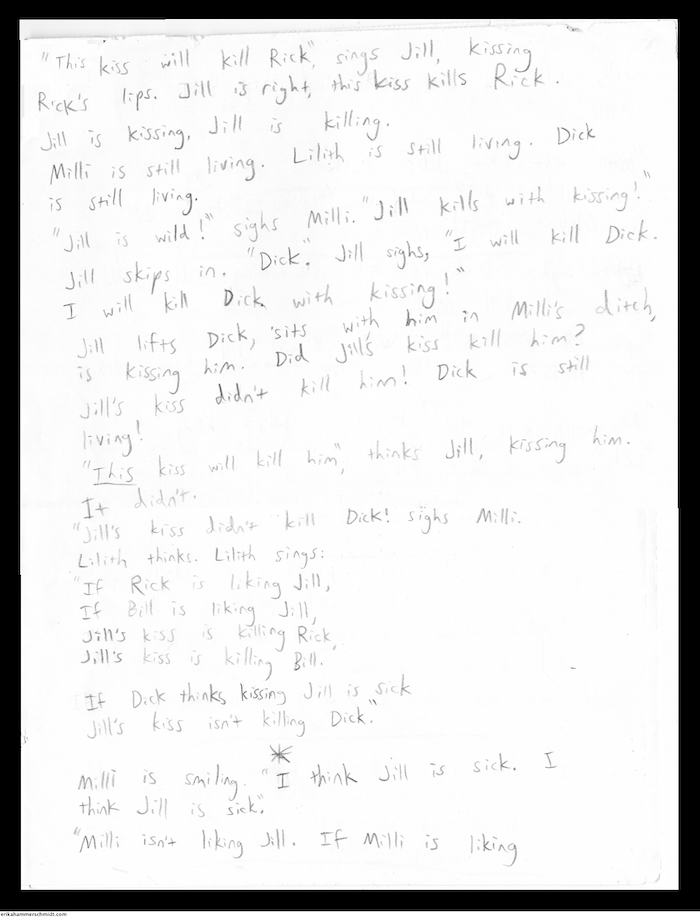 "This kiss will kill Rick", sings Jill, kissing
Rick's lips. Jill is right, this kiss kills Rick.
Jill is kissing, Jill is killing.
Milli is still living. Lilith is still living. Dick
is still living.
"Jill is wild!" sighs Milli. "Jill kills with kissing!"
Jill skips in. "Dick." Jill sighs, "I will kill Dick.
I will kill Dick with kissing!"
Jill lifts Dick, sits with him in Milli's ditch,
is kissing him. Did Jill's kiss kill him?
Jill's kiss didn't kill him! Dick is still
living!
"This kiss will kill him", thinks Jill, kissing him.
It didn't.
"Jill's kiss didn't kill Dick! sighs Milli.
Lilith thinks. Lilith sings:
"If Rick is liking Jill,
If Bill is liking Jill,
Jill's kiss is killing Rick,
Jill's kiss is killing Bill.
If Dick thinks kissing Jill is sick
Jill's kiss isn't killing Dick."
Milli is smiling. "I think Jill is sick. I
think Jill is sick."
"Milli isn't liking Jill. If Milli is liking
erikahammerschmidt.com